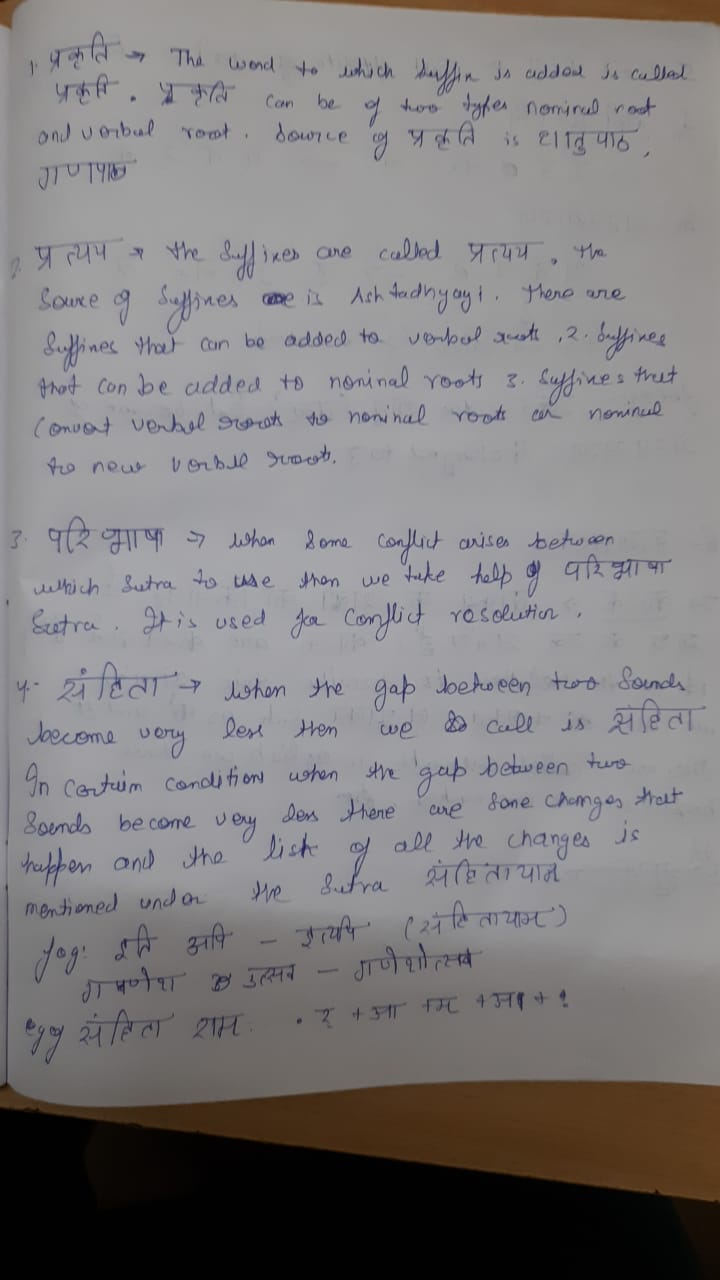 1. प्रकृति → The word to which suffix is added is called
प्रकृति. प्रकृति can be of two types nominal root
and verbal root. Source of प्रकृति is धातुपाठ,
गणपाठ
2. प्रत्यय → the suffixes are called प्रत्यय. The
source of suffixes is Ashtadhyayi. There are
suffixes that can be added to verbal roots, 2. suffixes
that can be added to nominal roots 3. suffixes that
convert verbal roots to nominal roots or nominal
to new verbal roots.
3. परिभाषा → when some conflict arises between
which sutra to use then we take help of परिभाषा
Sutra. It is used for conflict resolution.
4- संहिता → when the gap between two sounds
become very less then we call is संहिता
In certain conditions when the gap between two
sounds become very less there are some changes that
happen and the list of all the changes is
mentioned under the sutra संहितायाम
इति अपि - इत्यपि (संहितायाम)
गणेश उत्सव - गणेशोत्सव
eg of संहिता राम. र +आ +म +अ + :